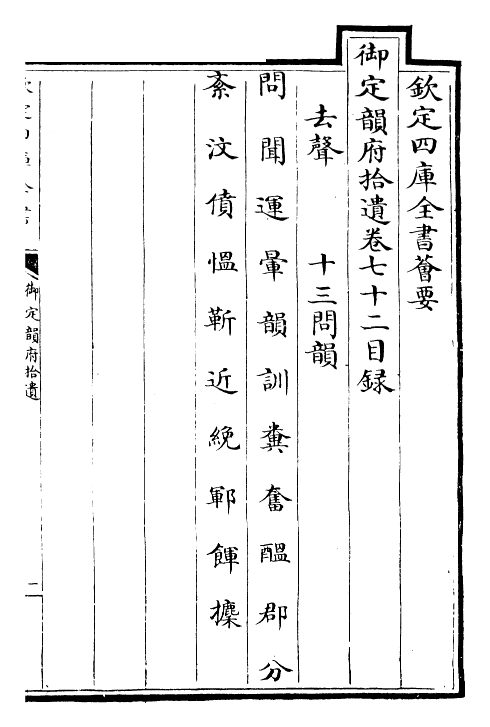 欽定四庫全書薈要
御定韻府拾遺卷七十二目録
去聲　十三問韻
問聞運暈韻訓糞奮醞郡分
紊汶僨慍靳近絻鄆餫攈
御定韻府拾遺